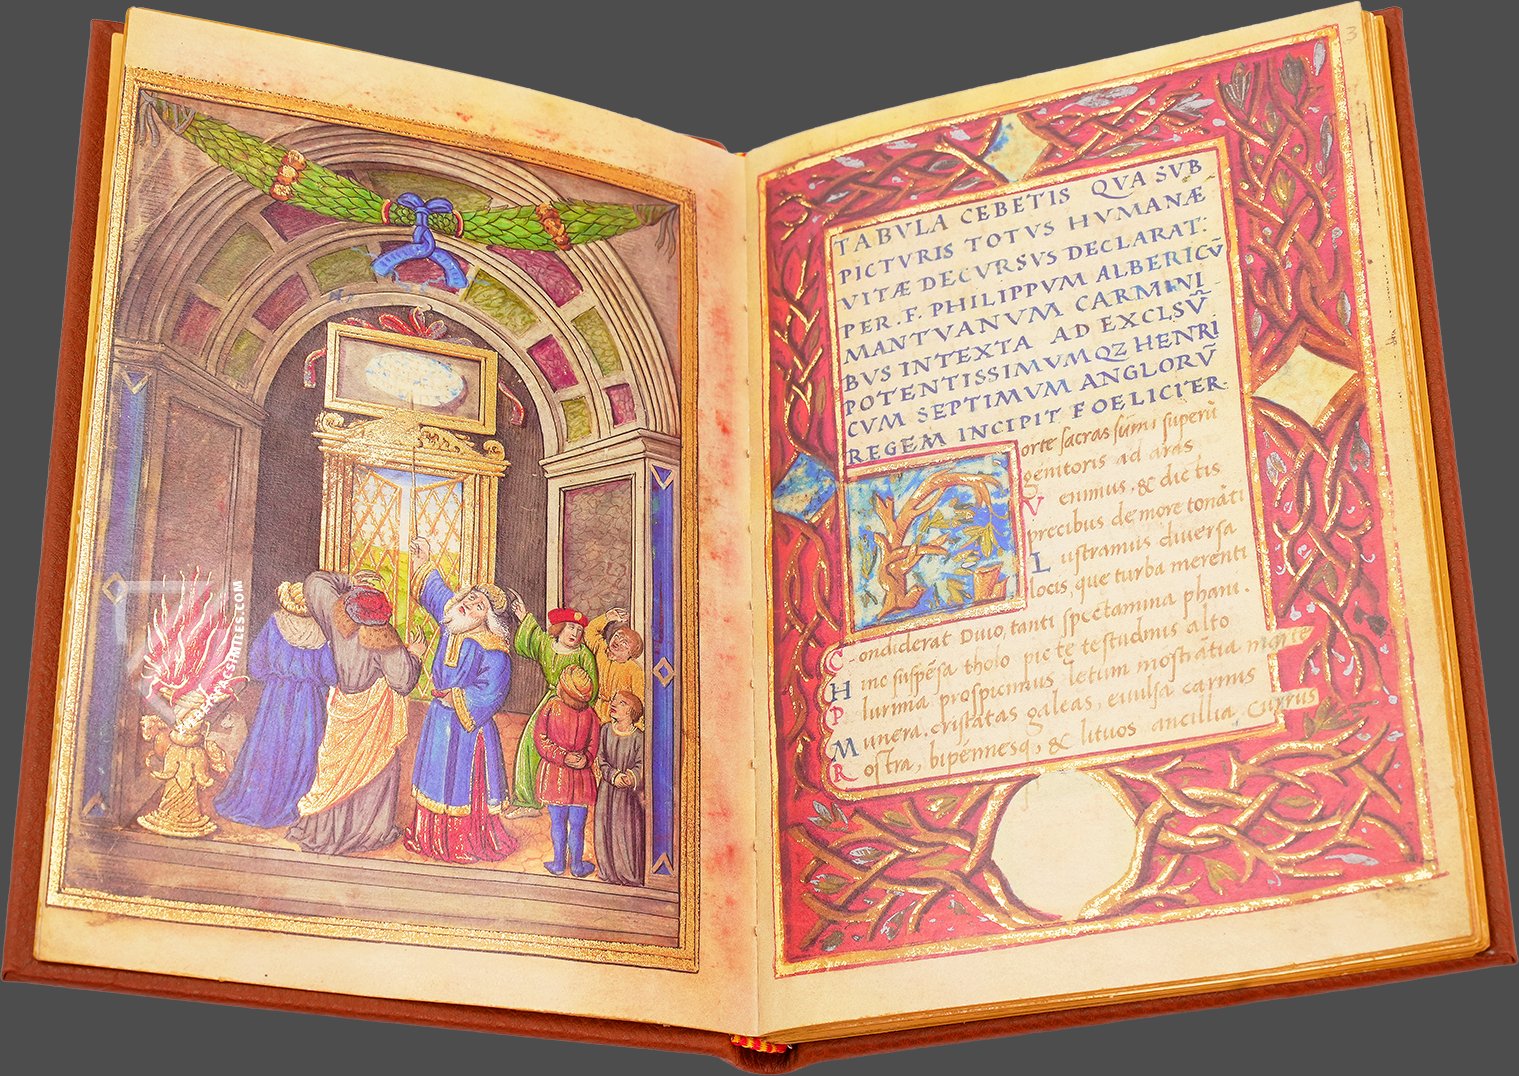 FACSIMILES.COM
3
TABVLA CEBETIS QVA SVB
PICTVRIS TOTVS HVMANÆ
VITÆ DECVRSVS DECLARAT:
PER.F. PHILIPPVM ALBERICV̄
MANTVANVM CARMINI
BVS INTEXTA AD EXCLSV̄
POTENTISSIMVMQZ HENRI
CVM SEPTIMVM ANGLORV̄
REGEM INCIPIT FOELICITER.
orte sacras sum̄i superū
genitoris ad aras
V enimus, & dictis
precibus de more tonāti
L ustramus diuersa
locis, que turba merenti
C ondiderat Diuo, tanti spectamina phani.
H inc suspēsa tholo picte testudinis alto
P lurima prospicimus letum mostrātia
M unera, cristatas galeas, euulsa carinis
R ostra, bipēnnesq, & lituos ancillia currus